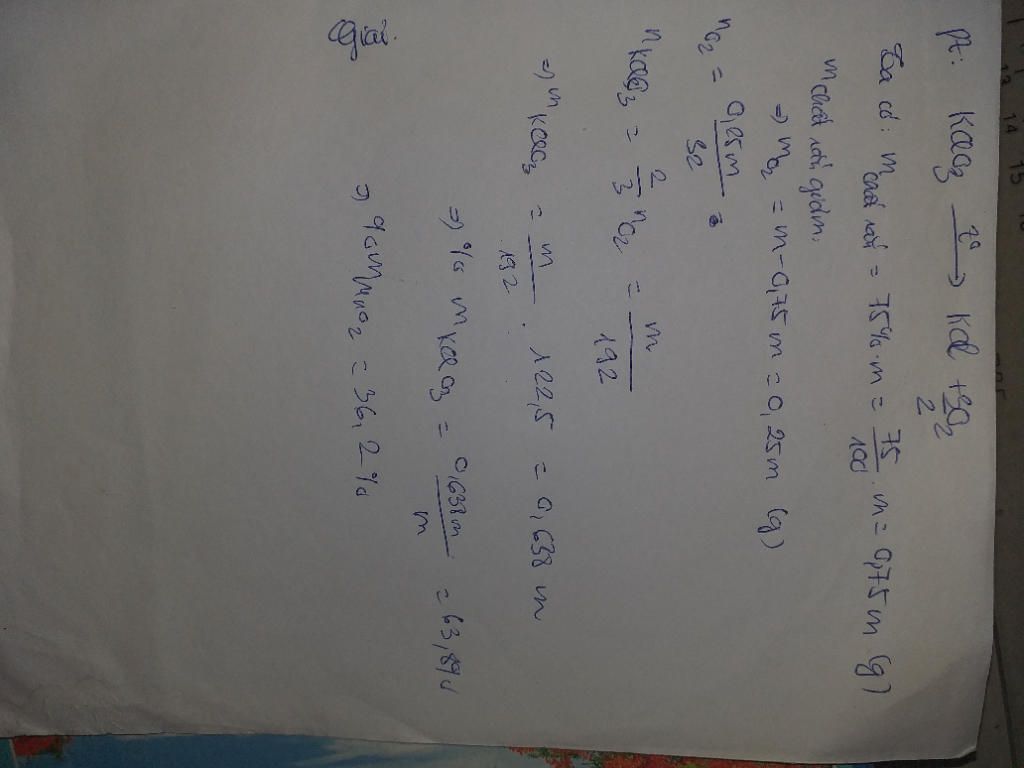 Pt: KClO3 t° → KCl + 3/2 O2
Ta có: m chất rắn = 75% . m = 75/100 . m = 0,75m (g)
m chất rắn giảm:
=> mO2 = m - 0,75m = 0,25m (g)
nO2 = 0,25m/32
nKClO3 = 2/3 nO2 = m/192
=> mKClO3 = m/192 . 122,5 = 0,638 m
=> % mKClO3 = 0,638m/m = 63,8%
=> %mMnO2 = 36,2%